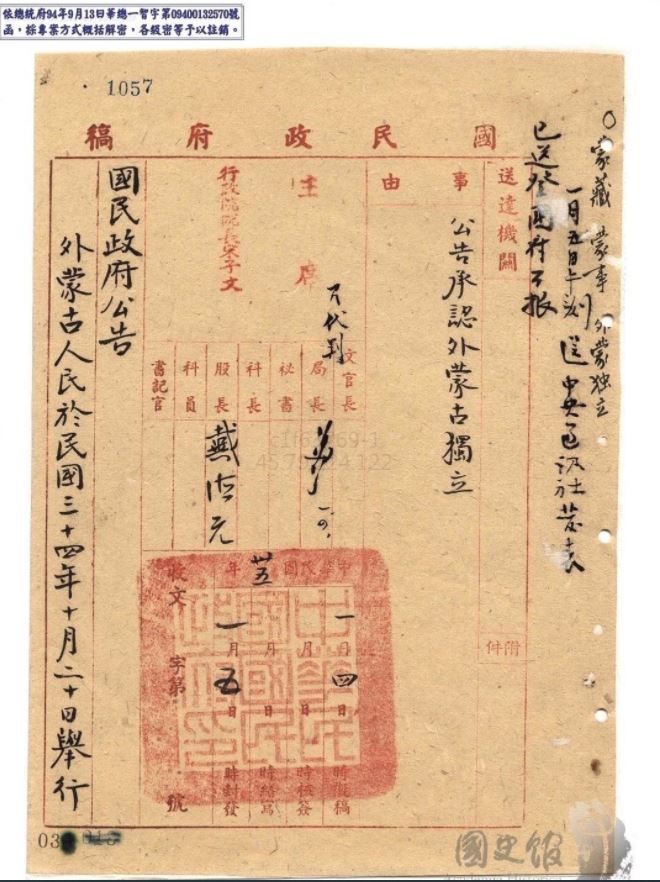 依總統府94年9月13日華總一智字第09400132570號
函，採專案方式概括解密，各級密等予以註銷。
1057
國民政府稿
蒙藏 蒙事 外蒙独立
一月五日午刻送中央通訊社發表
已送登國府公报
送達機關
附件
事由
公告承認外蒙古獨立
主席
行政院院長宋子文
代判
文官長
局長
祕書
科長
股長
科員
書記官
戴
元
中華民國卅五年
一月四日 時擬稿
月 日 時核簽
月 日 時繕寫
一月五日 時封發
收文 字第 號
中華民國國民政府印
國民政府公告
外蒙古人民於民國三十四年十月二十日舉行
國史館